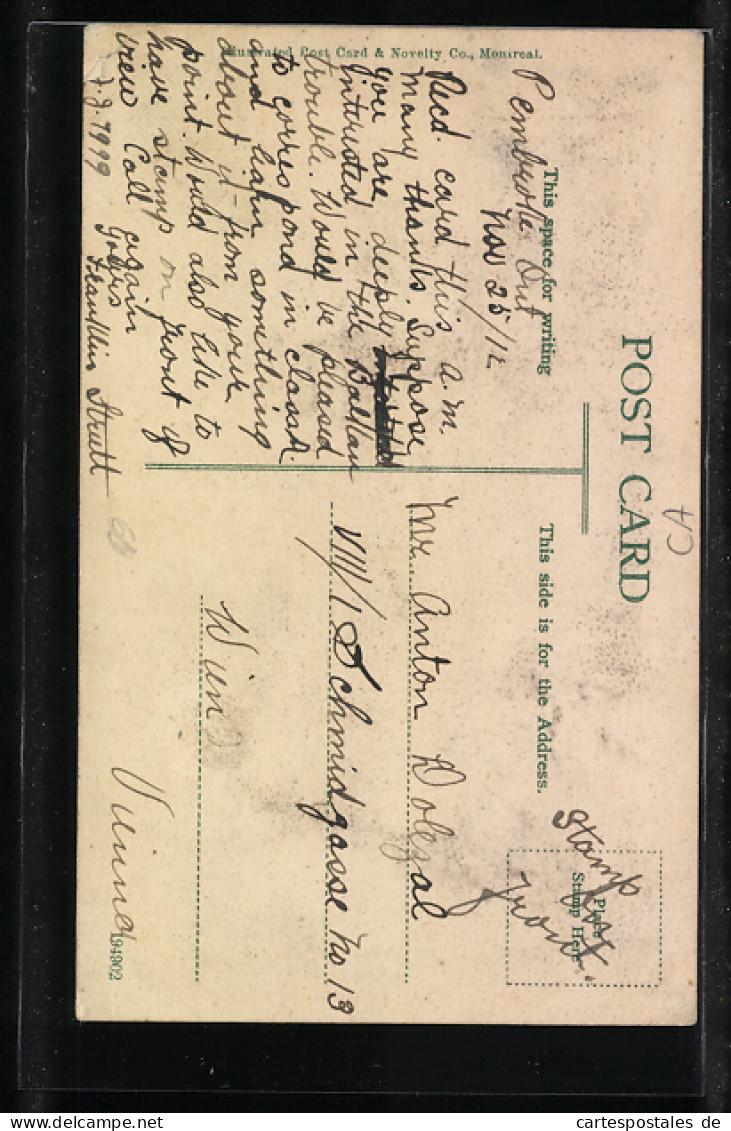 POST CARD
CA
This space for writing
This side is for the Address.
Place
Stamp Here
Stamp
on
front.
Pembroke Ont
Nov 25/12
Recd. card this a.m.
Many thanks. Suppose
you are deeply
intersted in the Balkan
trouble. Would be pleased
to correspond in classA.
and learn something
about it from your
point. Would also like to
have stamp on front of
view Call again
Yours
Franklin Strutt
Mr Anton Dolezal
VIII/1 Schmidgasse No 13
Wien
Vienna
Illustrated Post Card & Novelty Co., Montreal.
194902
www.cartespostales.de
cartespostales de